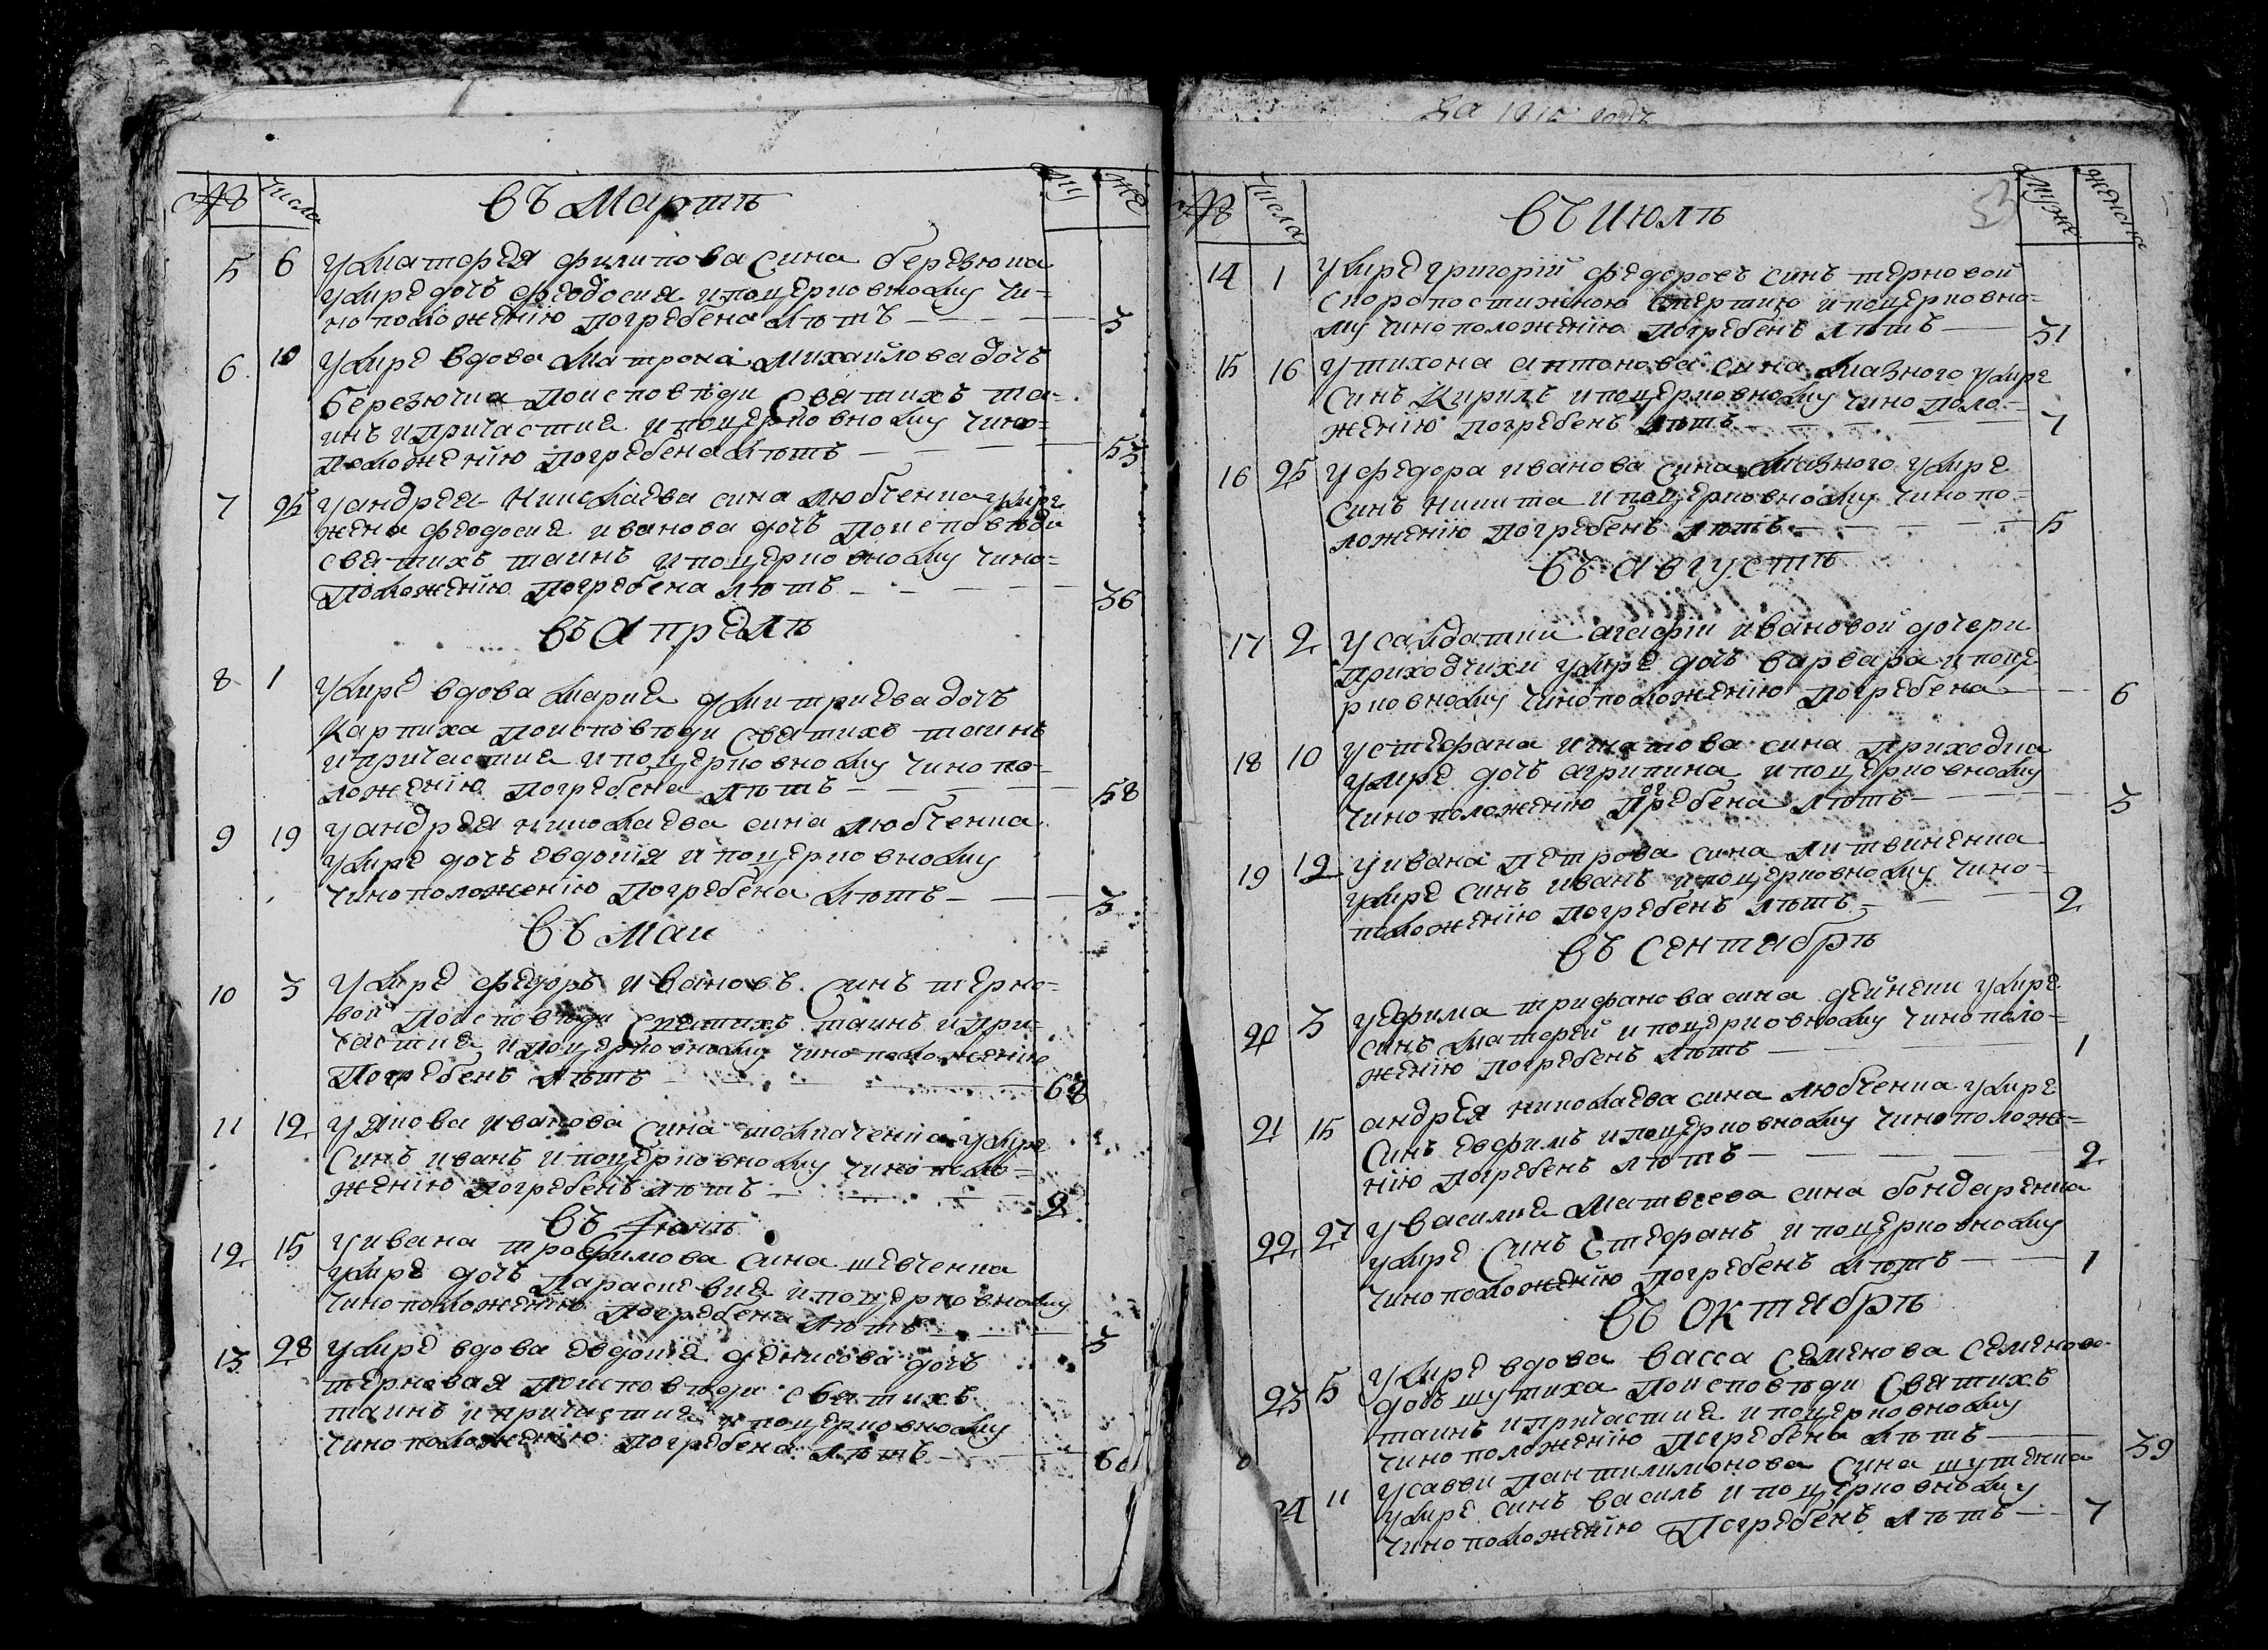 № числа Въ Мартѣ му же
5 6 у Матфея Филипова сина Березюка
умре дочь Феодосия и поцерковному чи-
ноположенію погребена лѣтъ — 3
6 10 умре вдова Матрона Михайлова дочь
Березючка поисповѣди Святихъ та-
инъ и причастия и поцерковному чино-
положенію погребена лѣтъ — 53
7 25 у андрея Николаева сина Любченка умре
жена Феодосия иванова дочь поисповѣди
святихъ таинъ и поцерковному чино-
положенію погребена лѣтъ — 36
Въ Апрелѣ
8 1 умре вдова Мария Дмитриева дочь
Карпиха поисповѣди Святихъ таинъ
и причастия и поцерковному чинопо-
ложенію погребена лѣтъ — 58
9 19 у андрея николаева сина Любченка
умре дочь Евдокия и поцерковному
чиноположенію погребена лѣтъ — 3
Въ Маи
10 3 умре Федоръ ивановъ синъ терно-
вой поисповѣди Святихъ таинъ и при-
частия и поцерковному чиноположенію
погребенъ лѣтъ — 62
11 12 у Якова иванова сина толмаченка умре
синъ иванъ и поцерковному чинополо-
женію погребенъ лѣтъ — 2
Въ Іюнѣ
12 15 у ивана трофимова сина шевченка
умре дочь Парасковия и поцерковному
чиноположенію погребена лѣтъ — 3
13 28 умре вдова Евдокия денисова дочь
терновая поисповѣди святихъ
таинъ и причастия и поцерковному
чиноположенію погребена лѣтъ — 60
За 1815 годъ
53
№ числа Въ Июлѣ муже женска
14 1 умре григорій федоровъ синъ терновой
скоропостижною смертию и поцерковно-
му чиноположенію погребенъ лѣтъ — 31
15 16 у тихона антонова сина Мазного умре
синъ Кирилъ и поцерковному чинополо-
женію погребенъ лѣтъ — 7
16 25 у федора иванова сина Мазного умре
синъ никита и поцерковному чинопо-
ложенію погребенъ лѣтъ — 5
Въ августѣ
17 2 у салдатки агафіи ивановой дочери
приходчихи умре дочь варвара и поце
рковному чиноположенію погребена — 6
18 10 у стефана игнатова сина приходка
умре дочь агрипина и поцерковному
чиноположенію погребена лѣтъ — 3
19 12 у ивана петрова сина литвиненка
умре синъ иванъ и поцерковному чино-
положенію погребенъ лѣтъ — 2
Въ Сентябрѣ
20 3 у ефима трифанова сина дейнеки умре
синъ Матфей и поцерковному чинополо-
женію погребенъ лѣтъ — 1
21 15 андрея николаева сина любченка умре
синъ Евфимъ и поцерковному чиноположе-
нію погребенъ лѣтъ — 2
22 27 у василия Матвеева сина бондаренка
умре синъ Стефанъ и поцерковному
чиноположенію погребенъ лѣтъ — 1
Въ Октябрѣ
23 5 умре вдова васса семенова семенова
дочь шутиха поисповѣди Святихъ
таинъ и причастия и поцерковному
чиноположенію погребена лѣтъ — 39
24 11 у савви Пантилимонова сина шутенка
умре синъ василь и поцерковному
чиноположенію погребенъ лѣтъ — 7